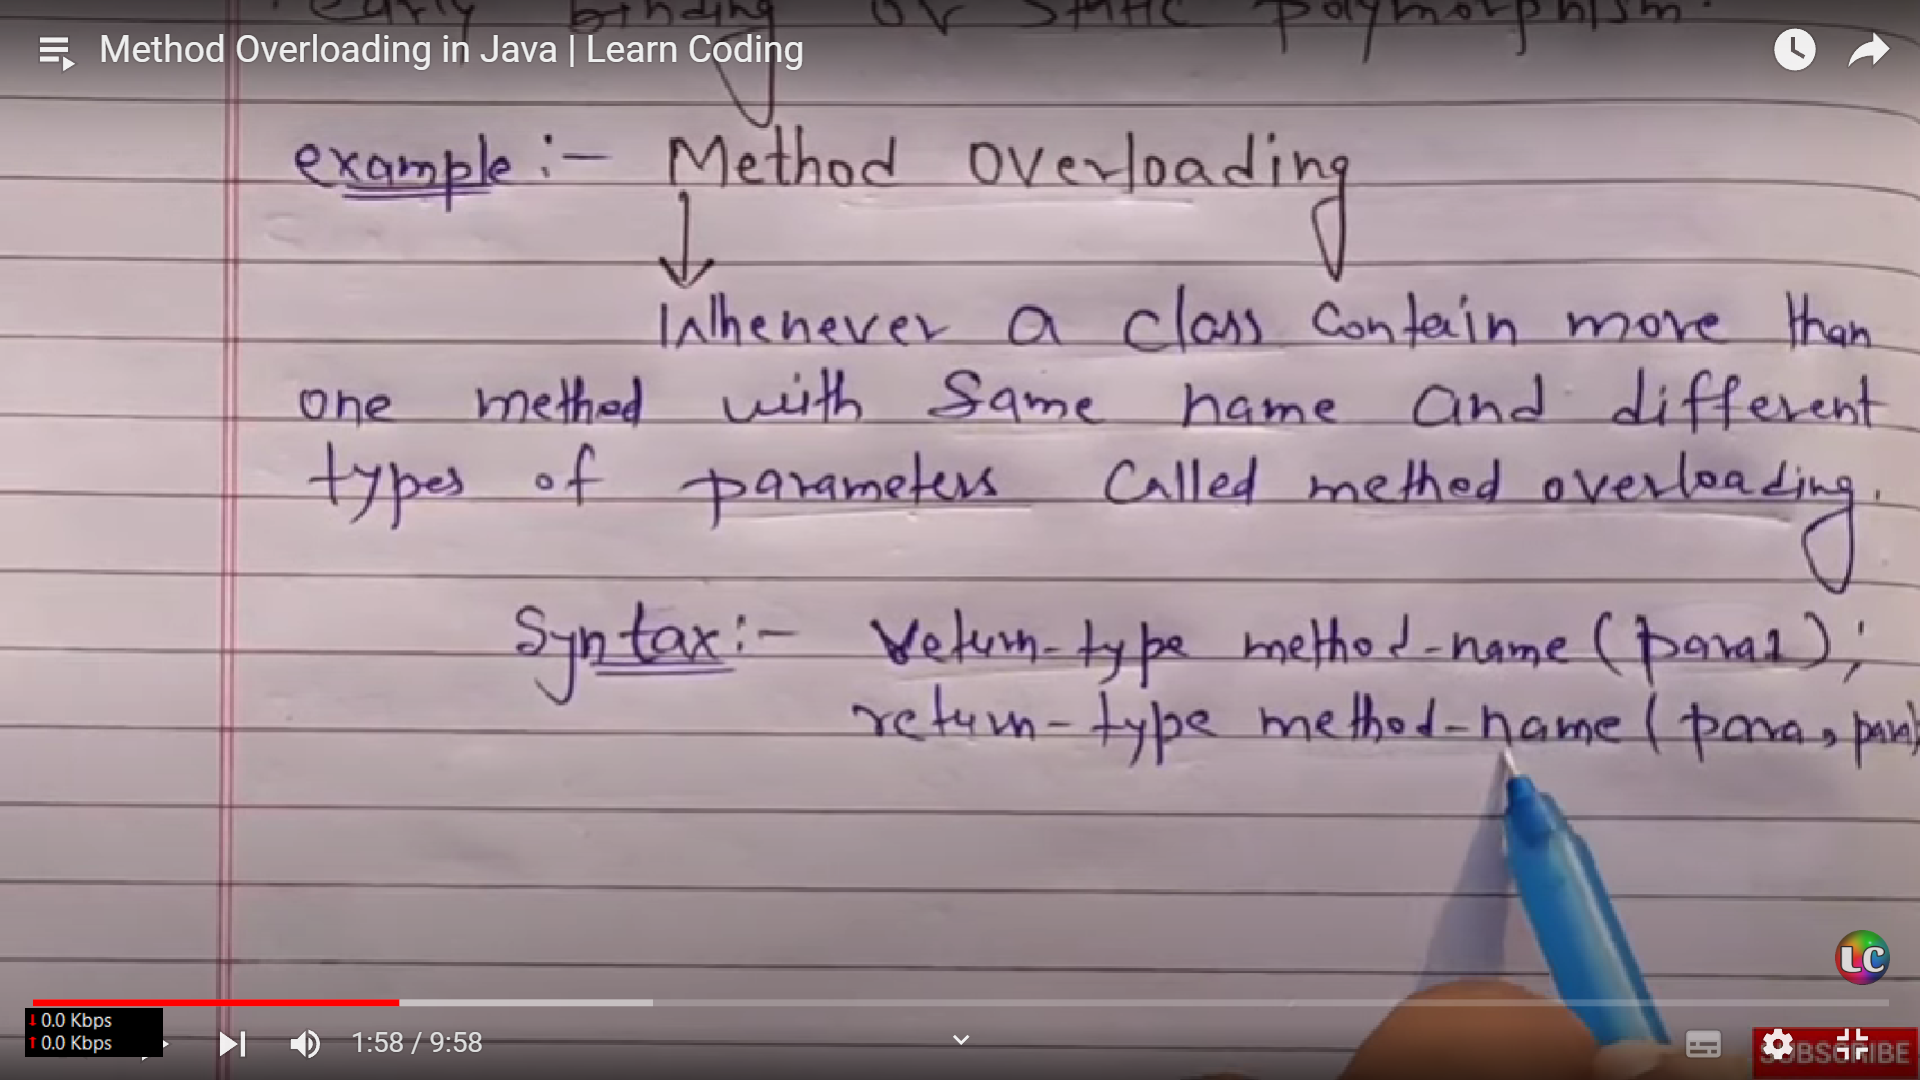 early binding or static polymorphism.
Method Overloading in Java | Learn Coding
example :- Method Overloading
Whenever a class contain more than
one method with Same name and different
types of parameters Called method overloading.
Syntax :- Return-type method-name (para1);
return-type method-name (para, para)
LC
0.0 Kbps
0.0 Kbps
1:58 / 9:58
SUBSCRIBE